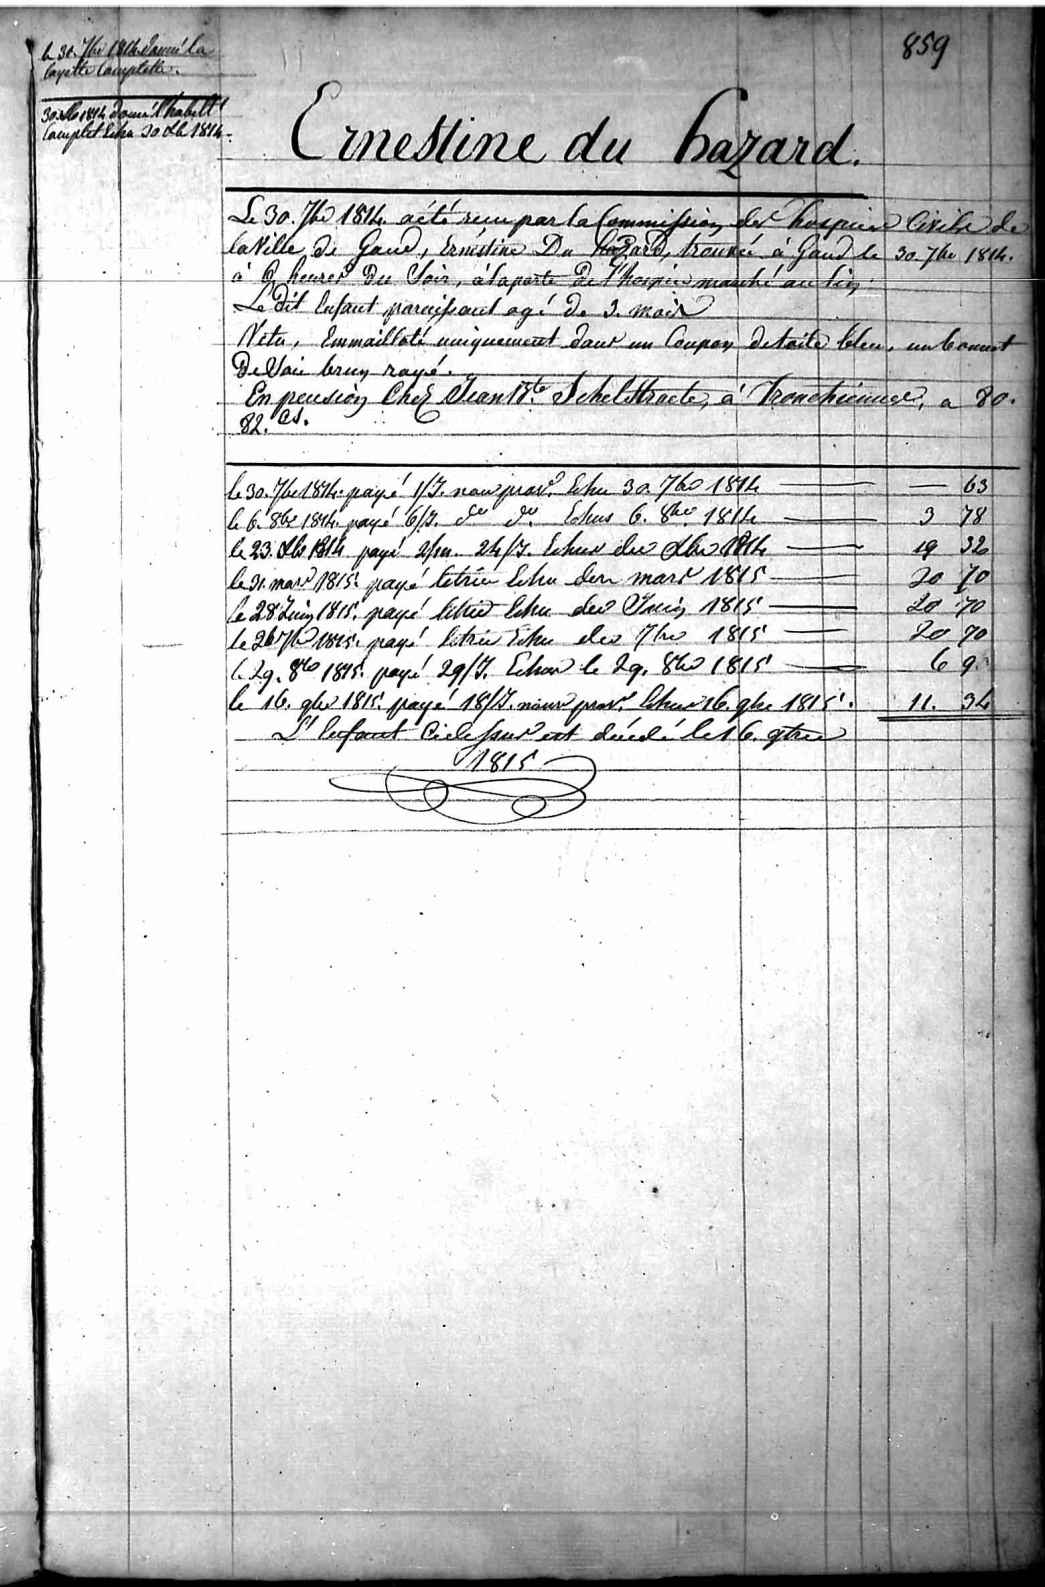 859
le 30. 7bre 1814 donné la
layette Complette.
30 Xbre 1814 donné l'habillt
Complet Echu 30 Xbre 1814.
Ernestine du hazard.
Le 30. 7bre 1814. a été reçu par la Commission des hospices Civils de
la Ville de Gand, Ernestine Du hazard, trouvée à Gand le 30. 7bre 1814.
à heures Du Soir, à la porte De l'hospice marché au lin;
Le dit Enfant paraissant agé De 3. mois
Vetu, Emmailloté uniquement dans un Coupon de toile bleu, un bonnet
De Soie brun rayé.
En pension Chez Jean Bte Schelstraete, à Tronchiennes, a 80.
82. Cs.
le 30. 7bre 1814. payé 1/J. nour prov. Echu 30. 7bre 1814 — 63
le 6. 8bre 1814. payé 6/J. do do Echus 6. 8bre 1814 3 78
le 23. Xbre 1814 payé 2/m. 24/J. Echus de Xbre 1814 19 32
le 31. mars 1815. payé letrie Echu den mars 1815 20 70
le 28 Juin 1815. payé letrie Echu de Juin 1815 20 70
le 26 7bre 1815. payé letrie Echu de 7bre 1815 20 70
le 29. 8bre 1815. payé 29/J. Echus le 29. 8bre 1815 6 9.
le 16. 9bre 1815. payé 18/J. nour prov. Echus 16. 9bre 1815. 11. 34
L'Enfant Ci dessus est décédé le 16. 9bre
1815